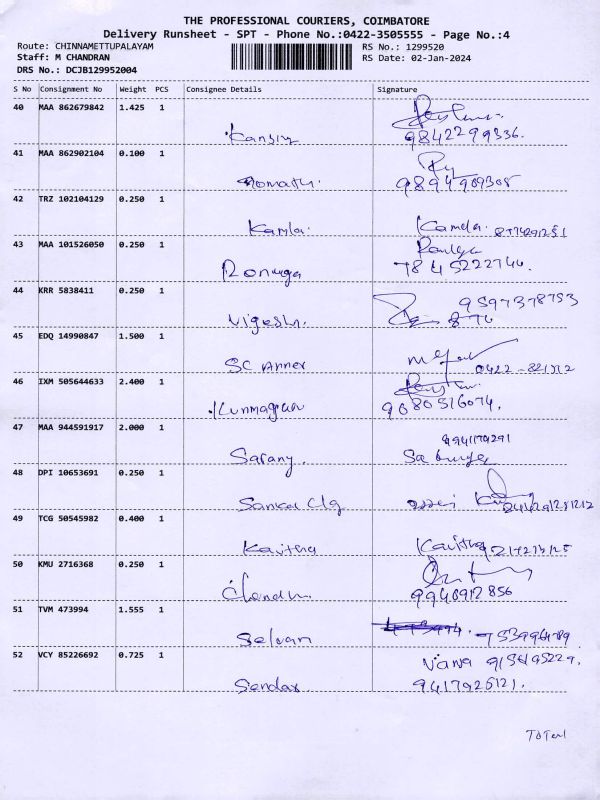 THE PROFESSIONAL COURIERS, COIMBATORE
Delivery Runsheet - SPT - Phone No.:0422-3505555 - Page No.:4
Route: CHINNAMETTUPALAYAM RS No.: 1299520
Staff: M CHANDRAN RS Date: 02-Jan-2024
DRS No.: DCJB129952004
S No Consignment No Weight PCS Consignee Details Signature
40 MAA 862679842 1.425 1
9842299336.
41 MAA 862902104 0.100 1
9894909305
42 TRZ 102104129 0.250 1
Kamla. Kamala.
43 MAA 101526050 0.250 1
Ronuga 7845222744.
44 KRR 5838411 0.250 1
Vigesh.
45 EDQ 14990847 1.500 1
SC Annex
46 IXM 505644633 2.400 1
9080516074.
47 MAA 944591917 2.000 1
Sarany.
48 DPI 10653691 0.250 1
49 TCG 50545982 0.400 1
Kavitha Kavitha
50 KMU 2716368 0.250 1
9940912856
51 TVM 473994 1.555 1
Selvan
52 VCY 85226692 0.725 1
Sendar. 9417926121.
Total